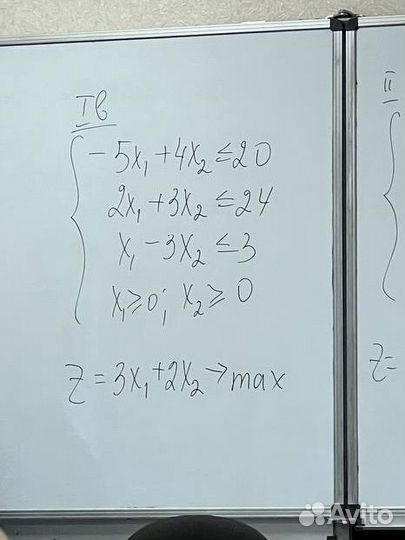 Iв
-5x₁+4x₂≤20
2x₁+3x₂≤24
x₁-3x₂≤3
x₁≥0; x₂≥0
Z=3x₁+2x₂→max
II
Z=
Avito